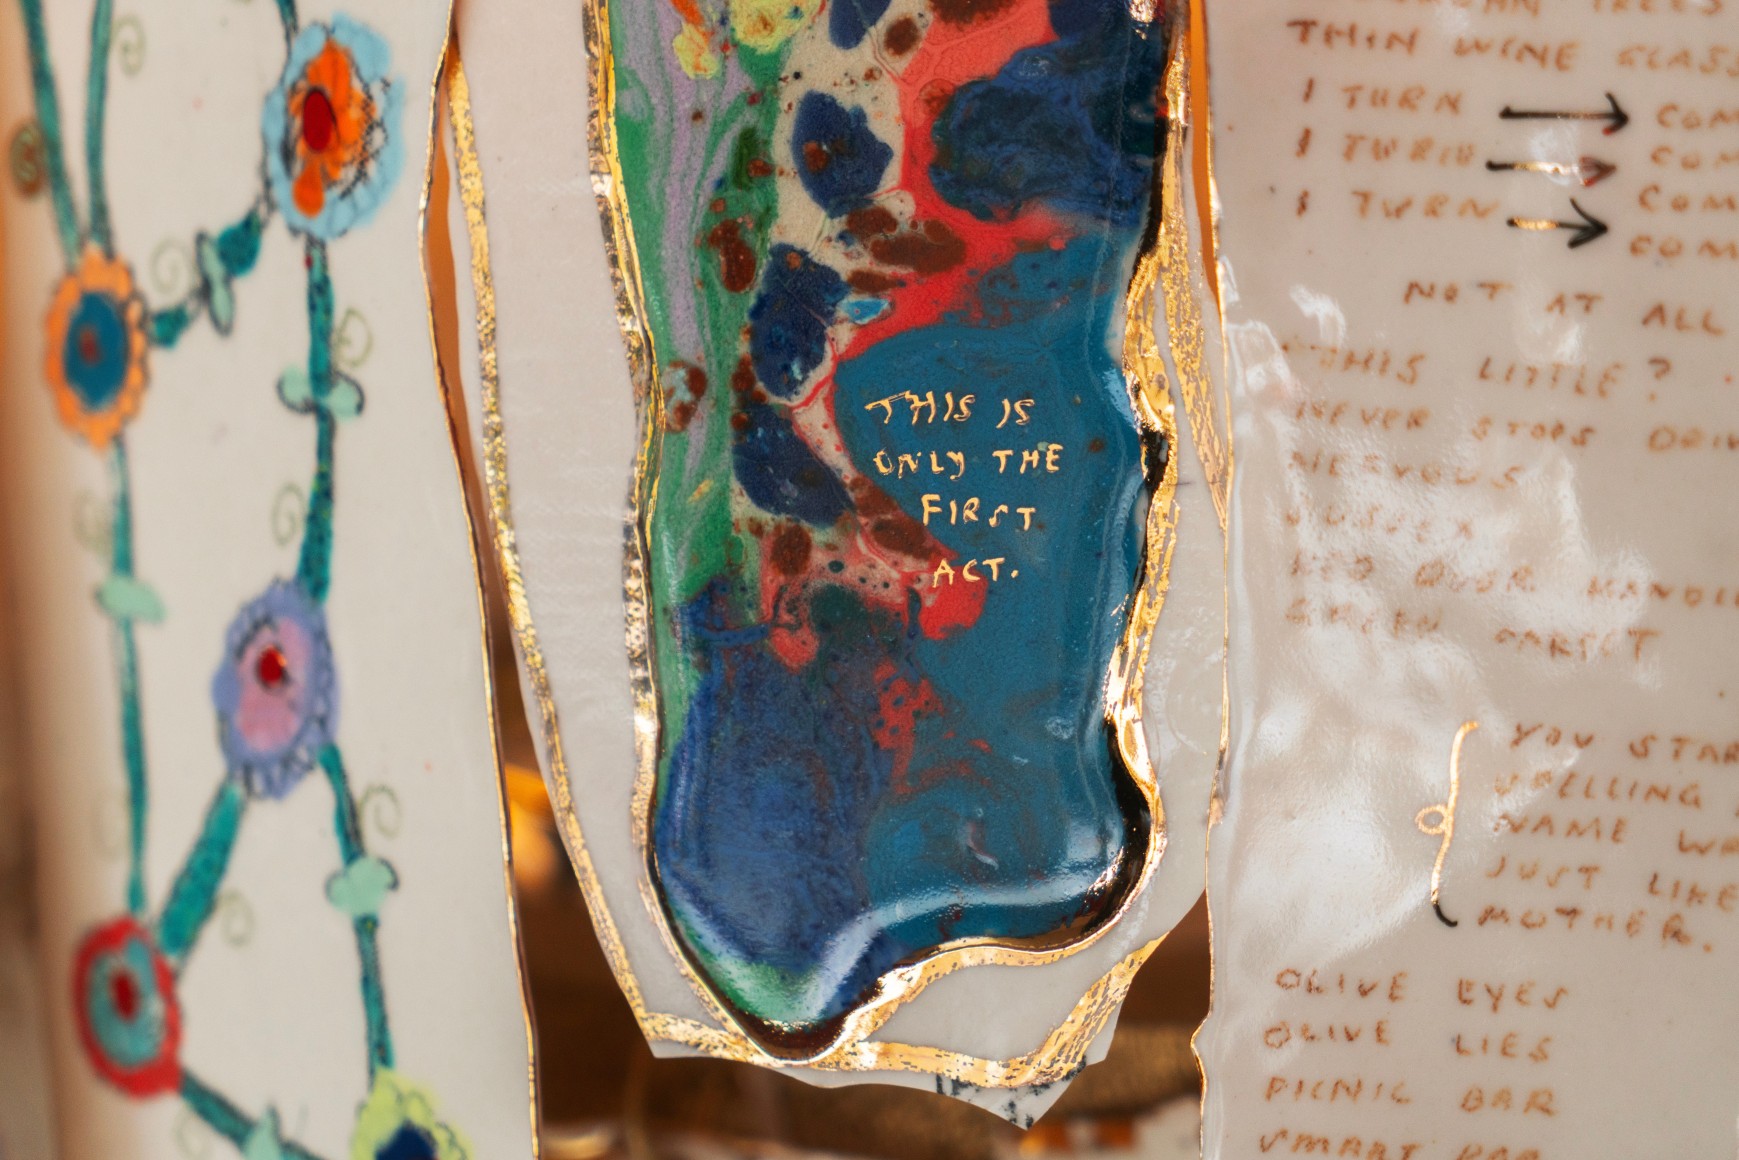 THIS IS
ONLY THE
FIRST
ACT.
TREES
THIN WINE GLASS
I TURN → COM
I TURN → COM
I TURN → COM
COM
NOT AT ALL
THIS LITTLE?
NEVER STOPS DRIV
NERVOUS
SUSSEX
RED DOOR HANDLE
GREEN CARPET
YOU STAR
SPELLING
NAME WR
JUST LIKE
MOTHER.
OLIVE EYES
OLIVE LIES
PICNIC BAR
SMART BAR